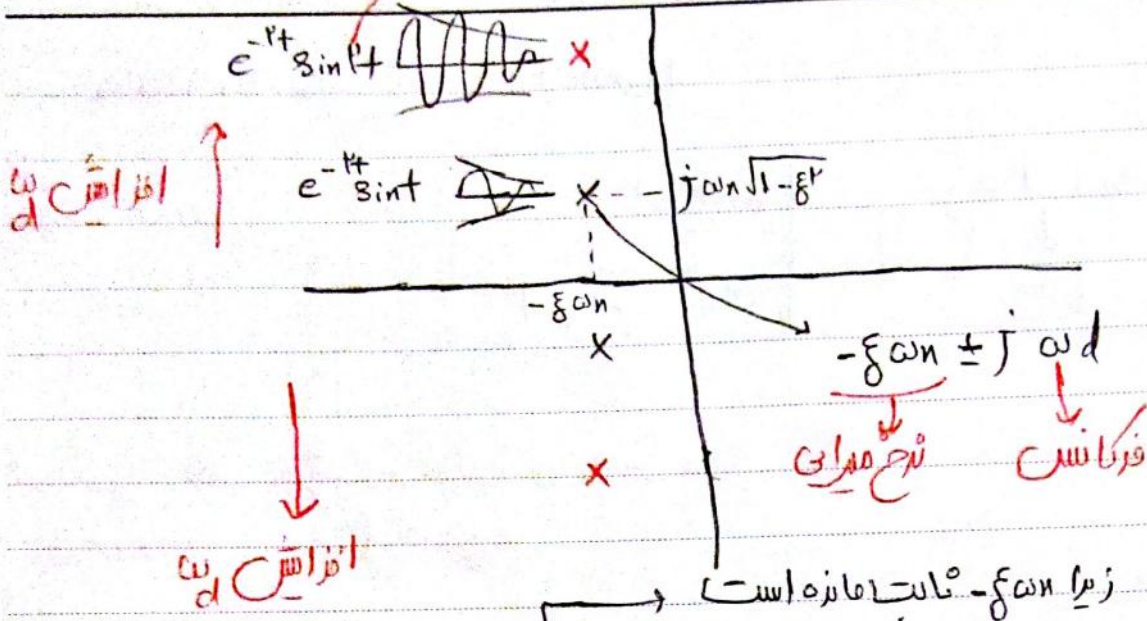 e^-۲t sin ۲t
افزایش ωd
e^-۲t sin t
jωn√1-ξ^۲
-ξωn
-ξωn ± j ωd
نرخ میرایی
فرکانس
افزایش ωd
زیرا -ξωn ثابت مانده است